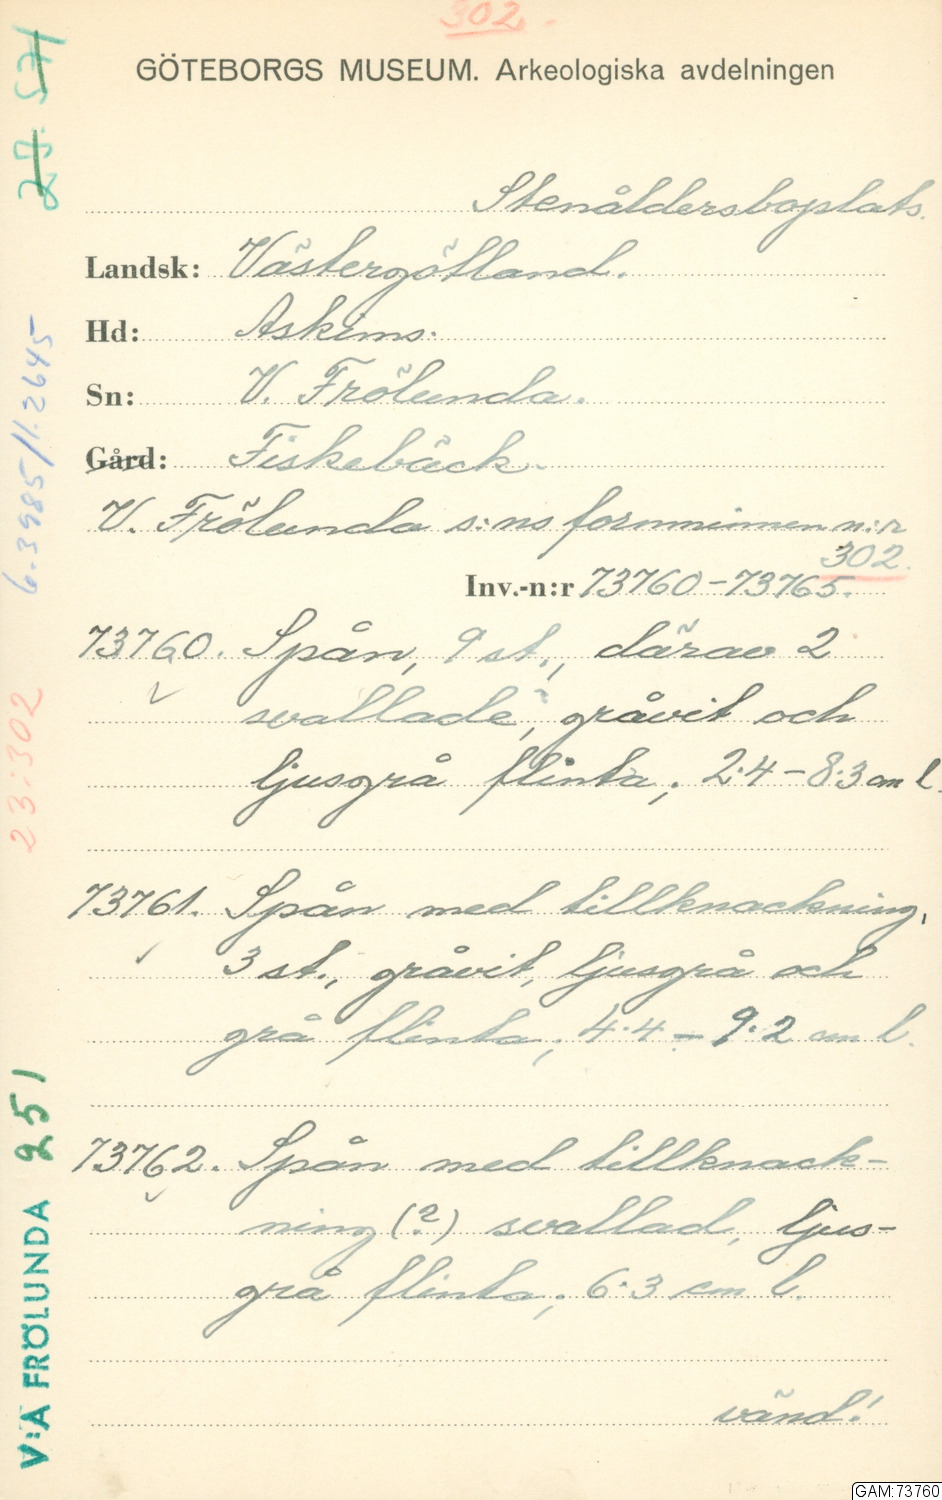 302.
GÖTEBORGS MUSEUM. Arkeologiska avdelningen
Stenåldersboplats.
Landsk: Västergötland.
Hd: Askims.
Sn: V. Frölunda.
Gård: Fiskebäck.
V. Frölunda s:ns fornminnen n:r
302.
Inv.-n:r 73760-73765.
73760. Spån, 9 st., därav 2
svallade, gråvit och
ljusgrå flinta; 2.4-8.3 cm l.
73761. Spån med tillknackning,
3 st., gråvit, ljusgrå och
grå flinta; 4.4-9.2 cm l.
73762. Spån med tillknack-
ning (?) svallad, ljus-
grå flinta; 6.3 cm l.
vänd!
V:A FRÖLUNDA 251
23:302
6.3985/11.2645
GAM:73760